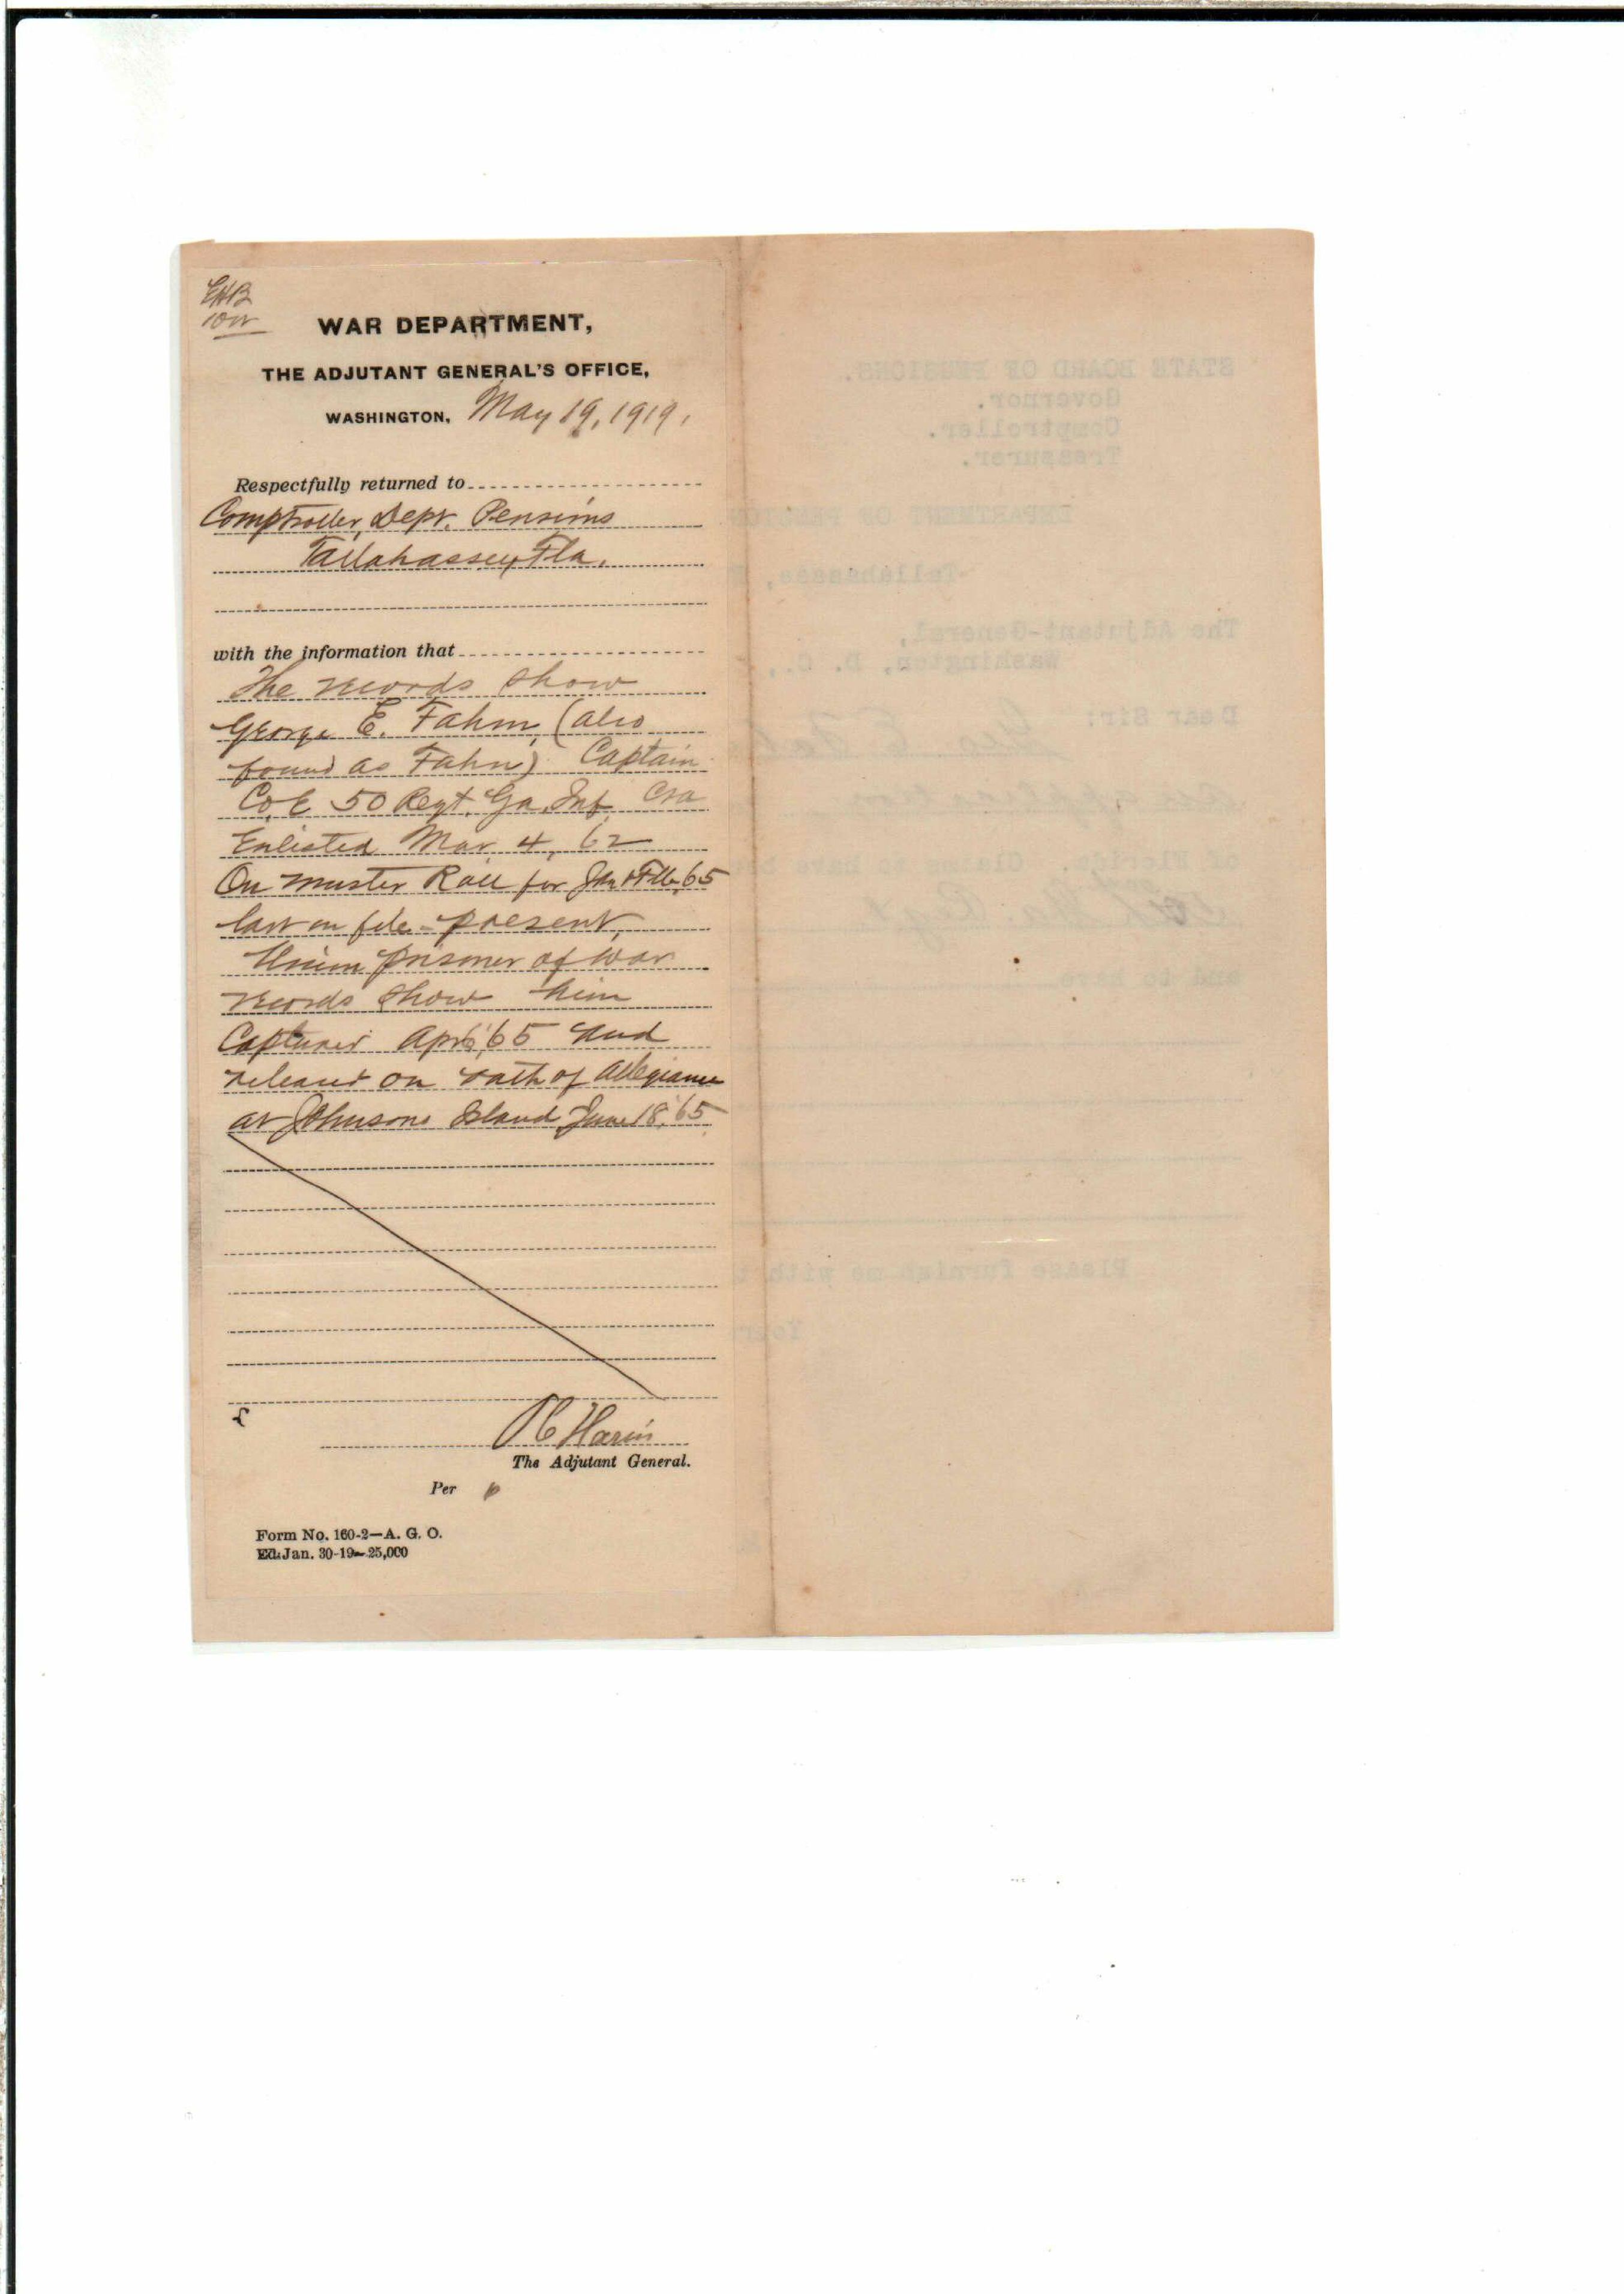 EHB
WAR DEPARTMENT,
THE ADJUTANT GENERAL'S OFFICE,
WASHINGTON, May 19, 1919.
Respectfully returned to
Comptroller, Dept. Pensions
Tallahassee, Fla.
with the information that
The records show
George E. Fahm, (also
found as Fahn) Captain
Co. E 50 Regt. Ga. Inf. CSA
Enlisted Mar. 4, 62
On muster Roll for Jan & Feb, 65
last on file - present,
Union prisoner of war
records show him
Captured Apr 6, 65 and
released on oath of allegiance
at Johnsons Island June 18, '65
P C Harris
The Adjutant General.
Per
Form No. 160-2—A. G. O.
Ed. Jan. 30-19—25,000
STATE BOARD OF PENSIONS.
Governor.
Comptroller.
Treasurer.
DEPARTMENT OF PENSION
Tallahassee,
The Adjutant-General,
Washington, D. C.,
Dear Sir: Geo E
of Florida. Claims to have
Ga Regt
and to have
Please furnish me with
Your